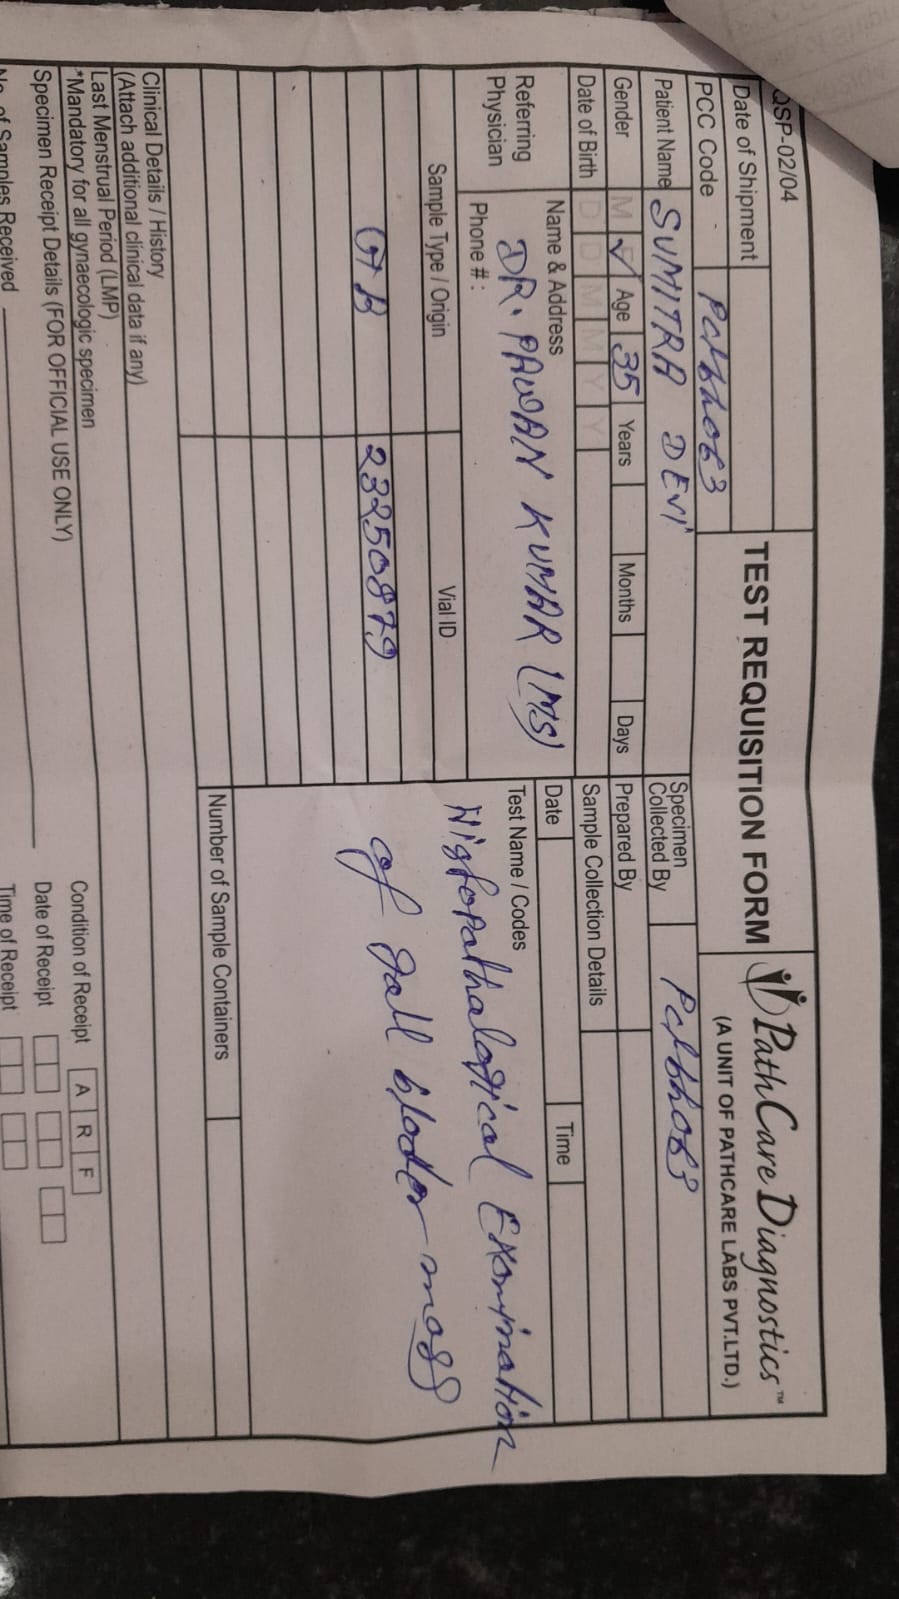 QSP-02/04
TEST REQUISITION FORM
PathCare Diagnostics™
(A UNIT OF PATHCARE LABS PVT.LTD.)
Date of Shipment
PCC Code
Patient Name SUMITRA DEVI
Gender M Age 35 Years Months Days
Date of Birth D D M M Y Y
Referring Physician
Name & Address
DR. PAWAN KUMAR (MS)
Phone # :
Specimen Collected By
Prepared By
Sample Collection Details
Date Time
Test Name / Codes
Histopathalogical Examination
of Gall blader
Sample Type / Origin Vial ID
GB 23250879
Number of Sample Containers
Clinical Details / History
(Attach additional clinical data if any)
Last Menstrual Period (LMP)
*Mandatory for all gynaecologic specimen
Specimen Receipt Details (FOR OFFICIAL USE ONLY)
No. of Samples Received
Condition of Receipt A R F
Date of Receipt
Time of Receipt